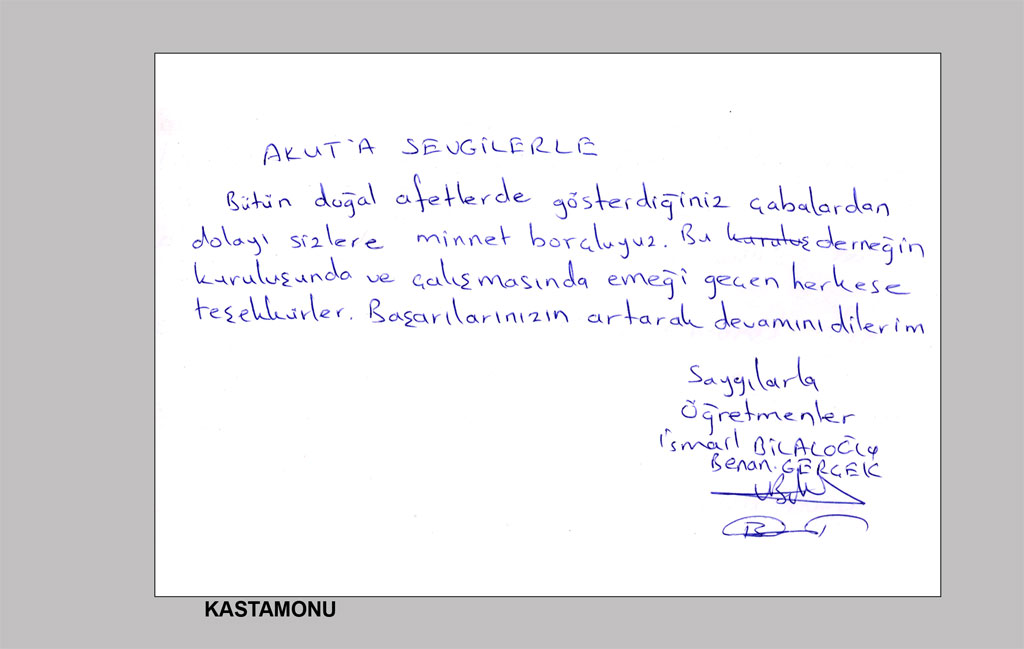 AKUT'A SEVGİLERLE
Bütün doğal afetlerde gösterdiğiniz çabalardan
dolayı sizlere minnet borçluyuz. Bu kuruluş derneğin
kuruluşunda ve çalışmasında emeği geçen herkese
teşekkürler. Başarılarınızın artarak devamını dilerim
Saygılarla
Öğretmenler
İsmail BİLALOĞLU
Benan GERÇEK
KASTAMONU